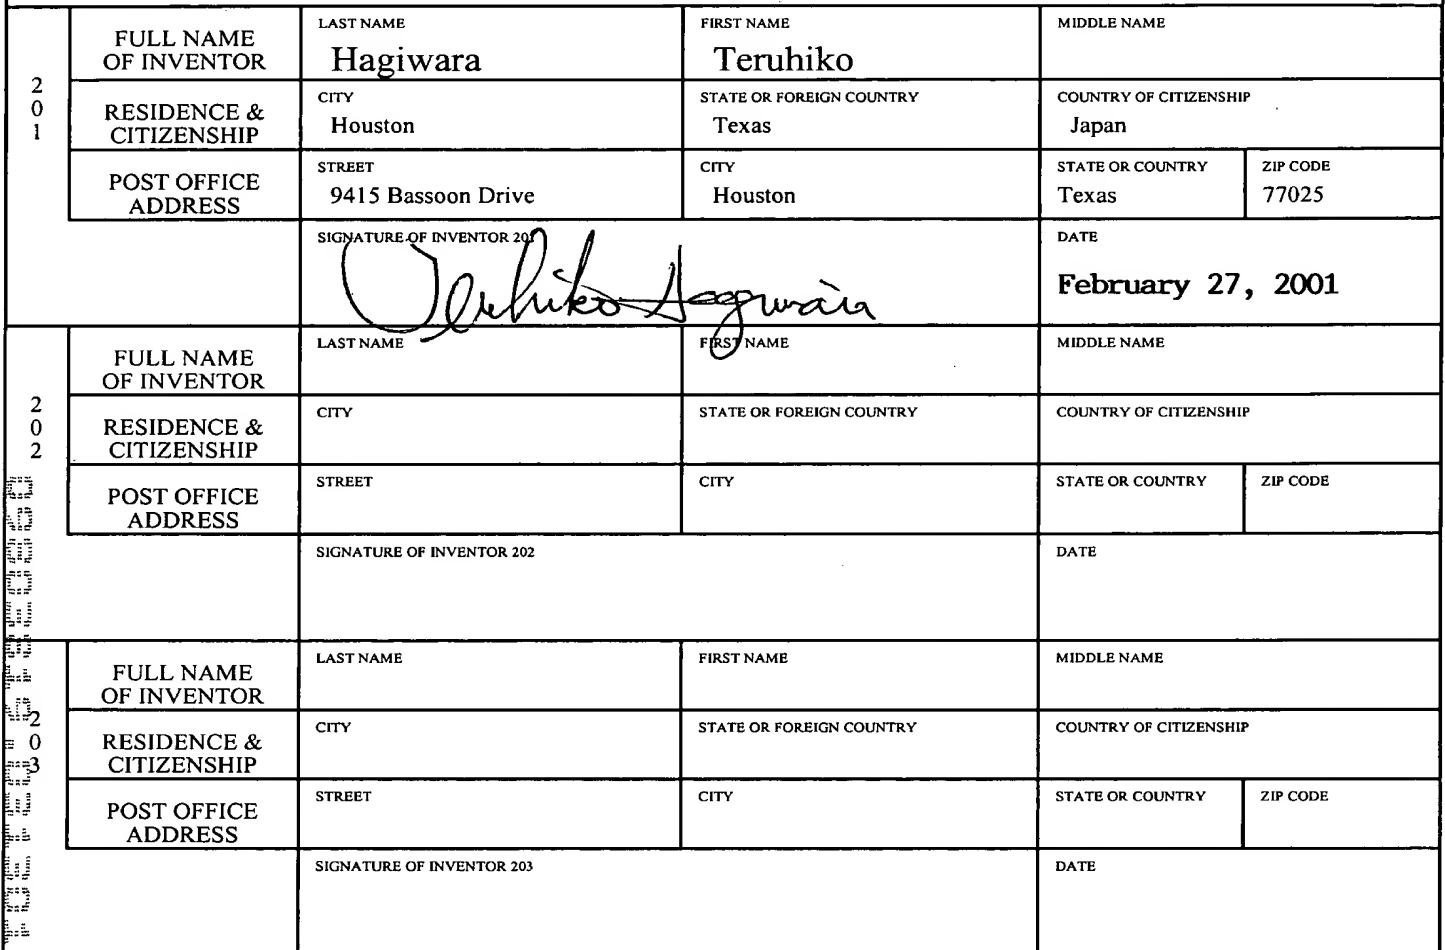 201
FULL NAME OF INVENTOR
LAST NAME
Hagiwara
FIRST NAME
Teruhiko
MIDDLE NAME
RESIDENCE & CITIZENSHIP
CITY
Houston
STATE OR FOREIGN COUNTRY
Texas
COUNTRY OF CITIZENSHIP
Japan
POST OFFICE ADDRESS
STREET
9415 Bassoon Drive
CITY
Houston
STATE OR COUNTRY
Texas
ZIP CODE
77025
SIGNATURE OF INVENTOR 201
Teruhiko Hagiwara
DATE
February 27, 2001
202
FULL NAME OF INVENTOR
LAST NAME
FIRST NAME
MIDDLE NAME
RESIDENCE & CITIZENSHIP
CITY
STATE OR FOREIGN COUNTRY
COUNTRY OF CITIZENSHIP
POST OFFICE ADDRESS
STREET
CITY
STATE OR COUNTRY
ZIP CODE
SIGNATURE OF INVENTOR 202
DATE
203
FULL NAME OF INVENTOR
LAST NAME
FIRST NAME
MIDDLE NAME
RESIDENCE & CITIZENSHIP
CITY
STATE OR FOREIGN COUNTRY
COUNTRY OF CITIZENSHIP
POST OFFICE ADDRESS
STREET
CITY
STATE OR COUNTRY
ZIP CODE
SIGNATURE OF INVENTOR 203
DATE